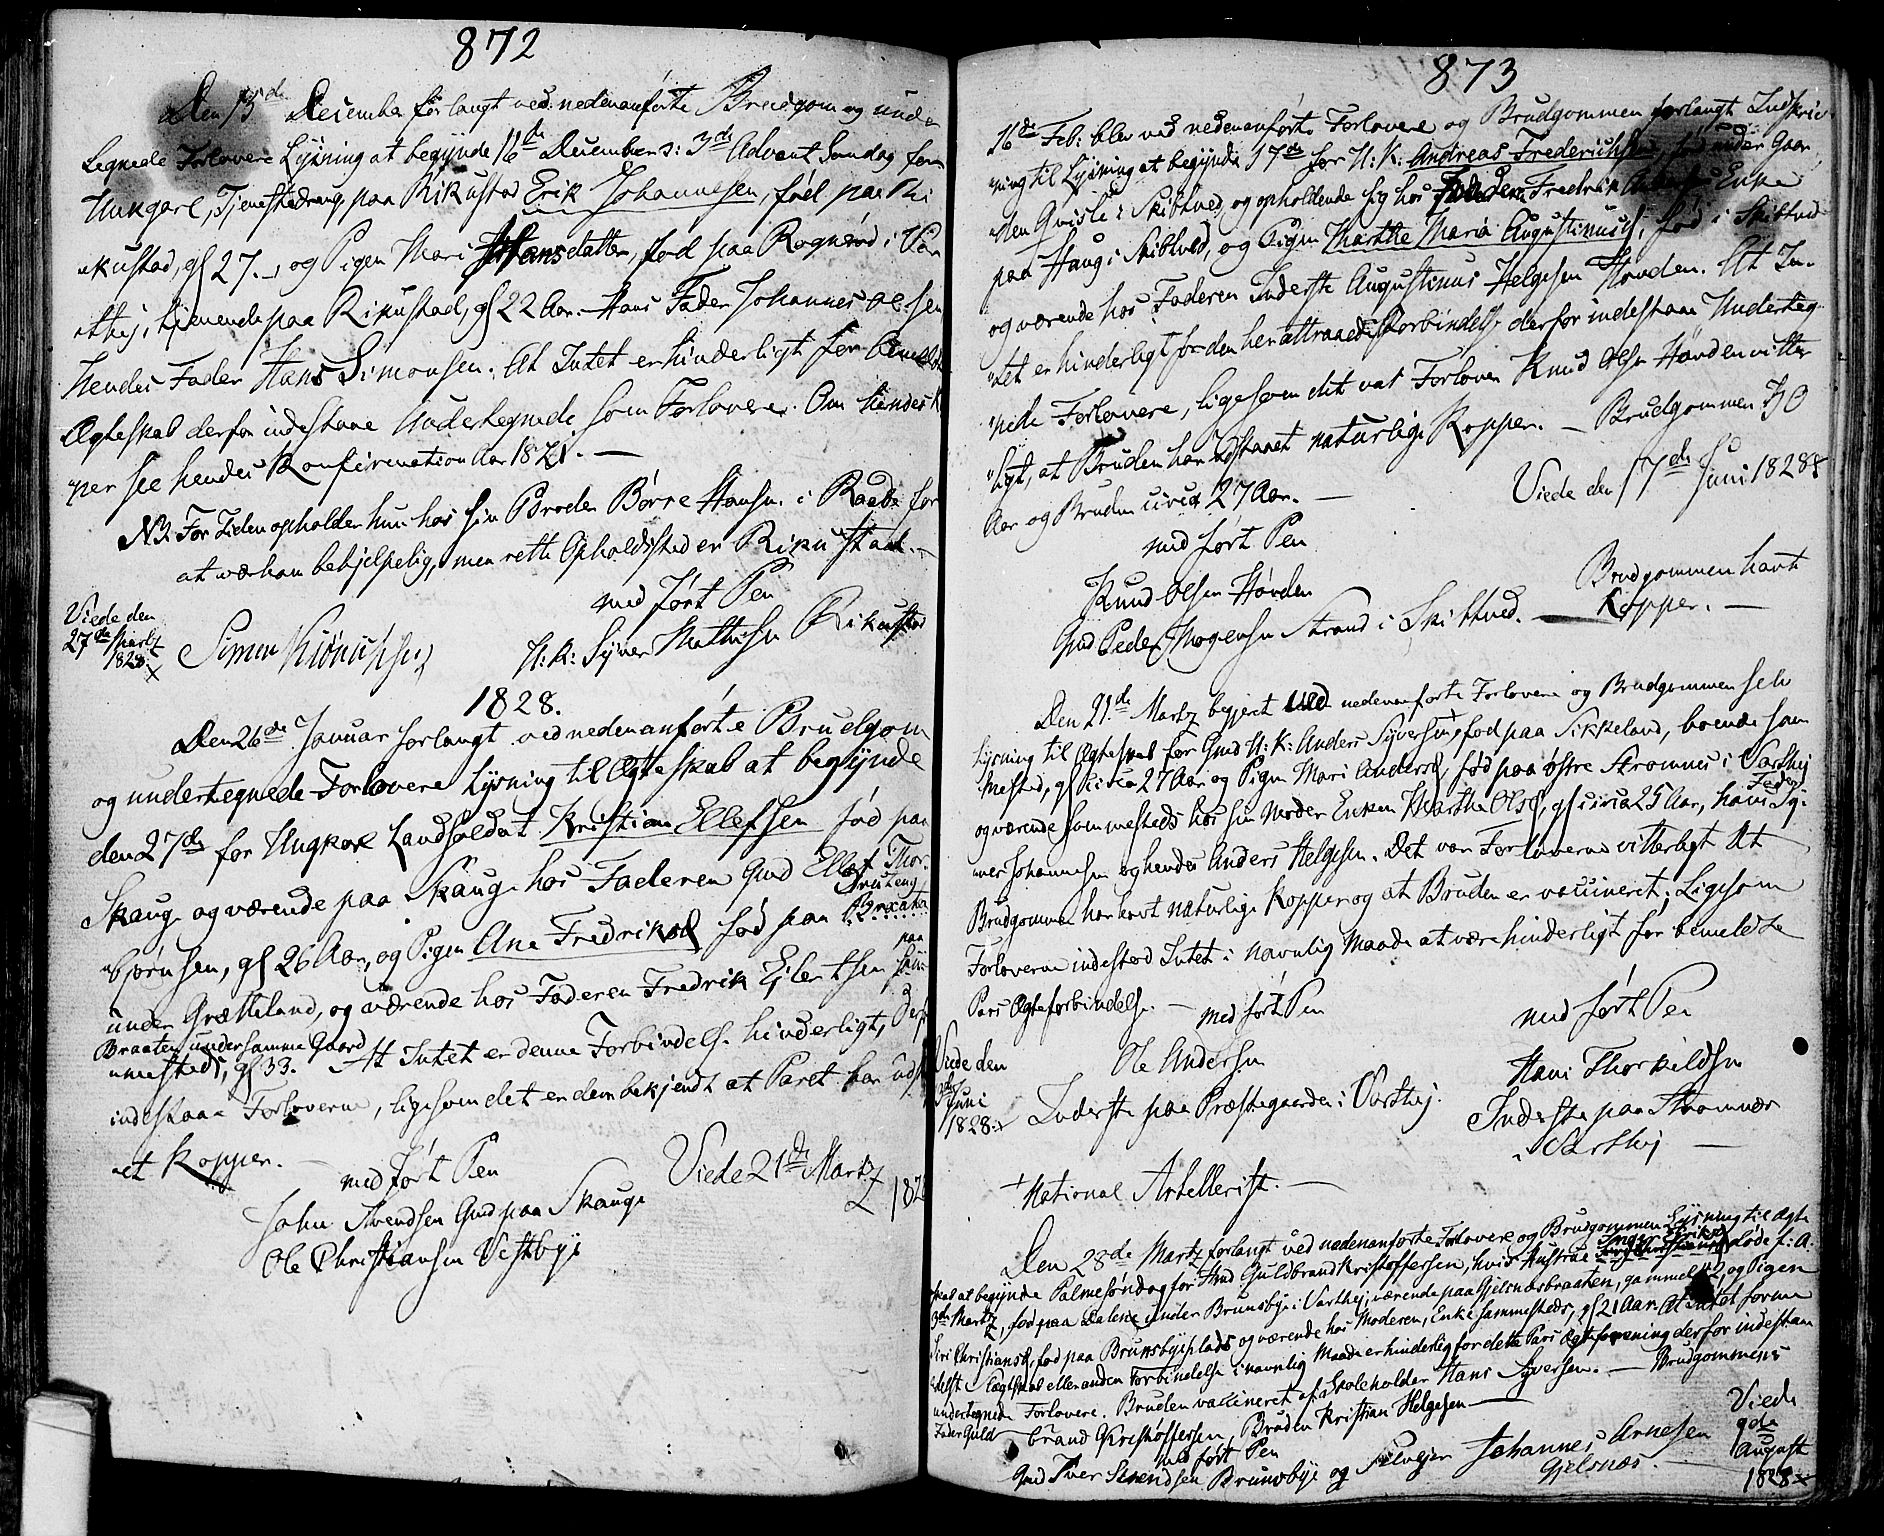 872
Den 13de December forlangt ved nedenanførte Brudgom og under
tegnede Forlovere Lysning at begynde 16de December ɔ: 3de Advent Søndag for
Ungkarl, Tjenestedreng paa Rikustad Erik Johannesen, fød paa Ri
kustad, gl 27. , og Pigen Mari Hansdatter, fød paa Rognerød i Var
thej, tjenende paa Rikustad, gl 22 Aar. Hans Fader Johannes Olsen
Hendes Fader Hans Simonsen. At Intet er hinderligt for bemeldte
Ægteskab derfor indestaae Undertegnede som Forlovere. Om hendes K
opper see hendes Konfirmation Aar 1821. —
NB. For Tiden opholder hun hos sin Broder Børre Hansen i Raade for
at være ham behjelpelig, men rette Opholdsted er Rikustad. —
med ført Pen
Viede den
27de Martz
1828.
Simen
U: K: Syver Mathisen Rikustad
1828.
Den 26de Januar forlangt ved nedenanførte Brudgom
og undertegnede Forlovere Lysning til Ægteskab at begynde
den 27de for Ungkarl Landsoldat Kristian Ellefsen fød paa
Skauge og værende paa Skauge hos Faderen Gmd Ellef Thor
bjørnsen, gl 26 Aar, og Pigen Ane Fredriksd fød paa Braaten
under Grætteland, og værende hos Faderen Fredrik Ejlertsen paa
Braaten under samme Gaard
mesteds, gl 33. At Intet er denne Forbindelse hinderligt, derf
indestaae Forloverne, ligesom det er dem bekjendt at Paret har udst
et Kopper.
med ført Pen
Viede 21de Martz
1828
John Svendsen Gmd paa Skauge
Ole Christiansen Vestbye
873
16de Feb: blev ved nedenanførte Forlovere og Brudgommen forlangt Indskriv
ning til Lysning at begynde 17de for U: K: Andreas Frederichsen, fød under Gaar
den Qvisle i Skibtved og opholdende sig hos Fredrik Enke
paa Haug i Skibtved, og Pigen Marthe Maria Augustinusd, fød i Skibtved
og værende hos Faderen Inderste Augustinus Helgesen Hovden. At In
tet er hinderligt for den her attraaede Forbindelse derfor indestaae Underteg
nede Forlovere, ligesom det var Forlover Knud Olsen Hovden vitter
ligt, at Bruden har udstaaet naturlige Kopper. — Brudgommen 30
Aar og Bruden circa 27 Aar. —
Viede den 17de Juni 1828
med ført Pen
Knud Olsen Hovden
Gmd Peder Mogensen Strand i Skibtved. —
Brudgommen havt
Kopper. —
Den 21de Martz begjeret ved nedenanførte Forlovere og Brudgommen selv
Lysning til Ægteskab for Gmd U: K: Anders Syversen, fød paa Sikkeland, boende sam
mested, gl circa 27 Aar og Pigen Mari Andersd, fød paa østre Stromnes i Varthej
og værende sammesteds hos sin Moder Enken Marthe Olsd, gl circa 25 Aar, hans Fader Sy
ver Johannesen og hendes Anders Helgesen. Det var Forloverne vitterligt At
Brudgommen har havt naturlige Kopper og at Bruden er vaccineret; Ligesom
Forloverne indestod Intet i navnlig Maade at være hinderligt for bemeldte
Pars Ægteforbindelse. —
med ført Pen
med ført Pen
Viede den
Juni
1828.
Ole Andersen
Inderste paa Præstegaarden i Varthej.
Hans Thorkildsen
Inderste paa Stromnes
Varthej —
+ National Artellerist. —
Den 28de Martz forlangt ved nedenanførte Forlovere og Brudgommen Lysning til Ægte
skab at begynde Palmesøndag for Emd Guldbrand Kristoffersen, hvis Hustrue Inger Eriksd døde f: A:
3de Martz, fød paa Dalene under Brunsbye i Varthej, værende paa Gjelsnesbraaten, gammel 42, og Pigen
Siri Christiansd, fød paa Brunsbyeplads og værende hos Moderen, Enke sammesteds, gl 21 Aar. At Intet forme
delst Slægtskab eller anden Forbindelse i navnlig Maade er hinderlig for dette Pars Ægteforening derfor indestaae
undertegnede Forlovere. Bruden vaccineret af Skoleholder Hans Syversen. — Brudgommens
Fader Guldbrand Kristoffersen, Bruden Kristian Helgesen —
med ført Pen
Gmd Iver Svendsen Brunsbye og Selvejer Johannes Arnesen
Gjelsnæs. —
Viede
9de
August
1828